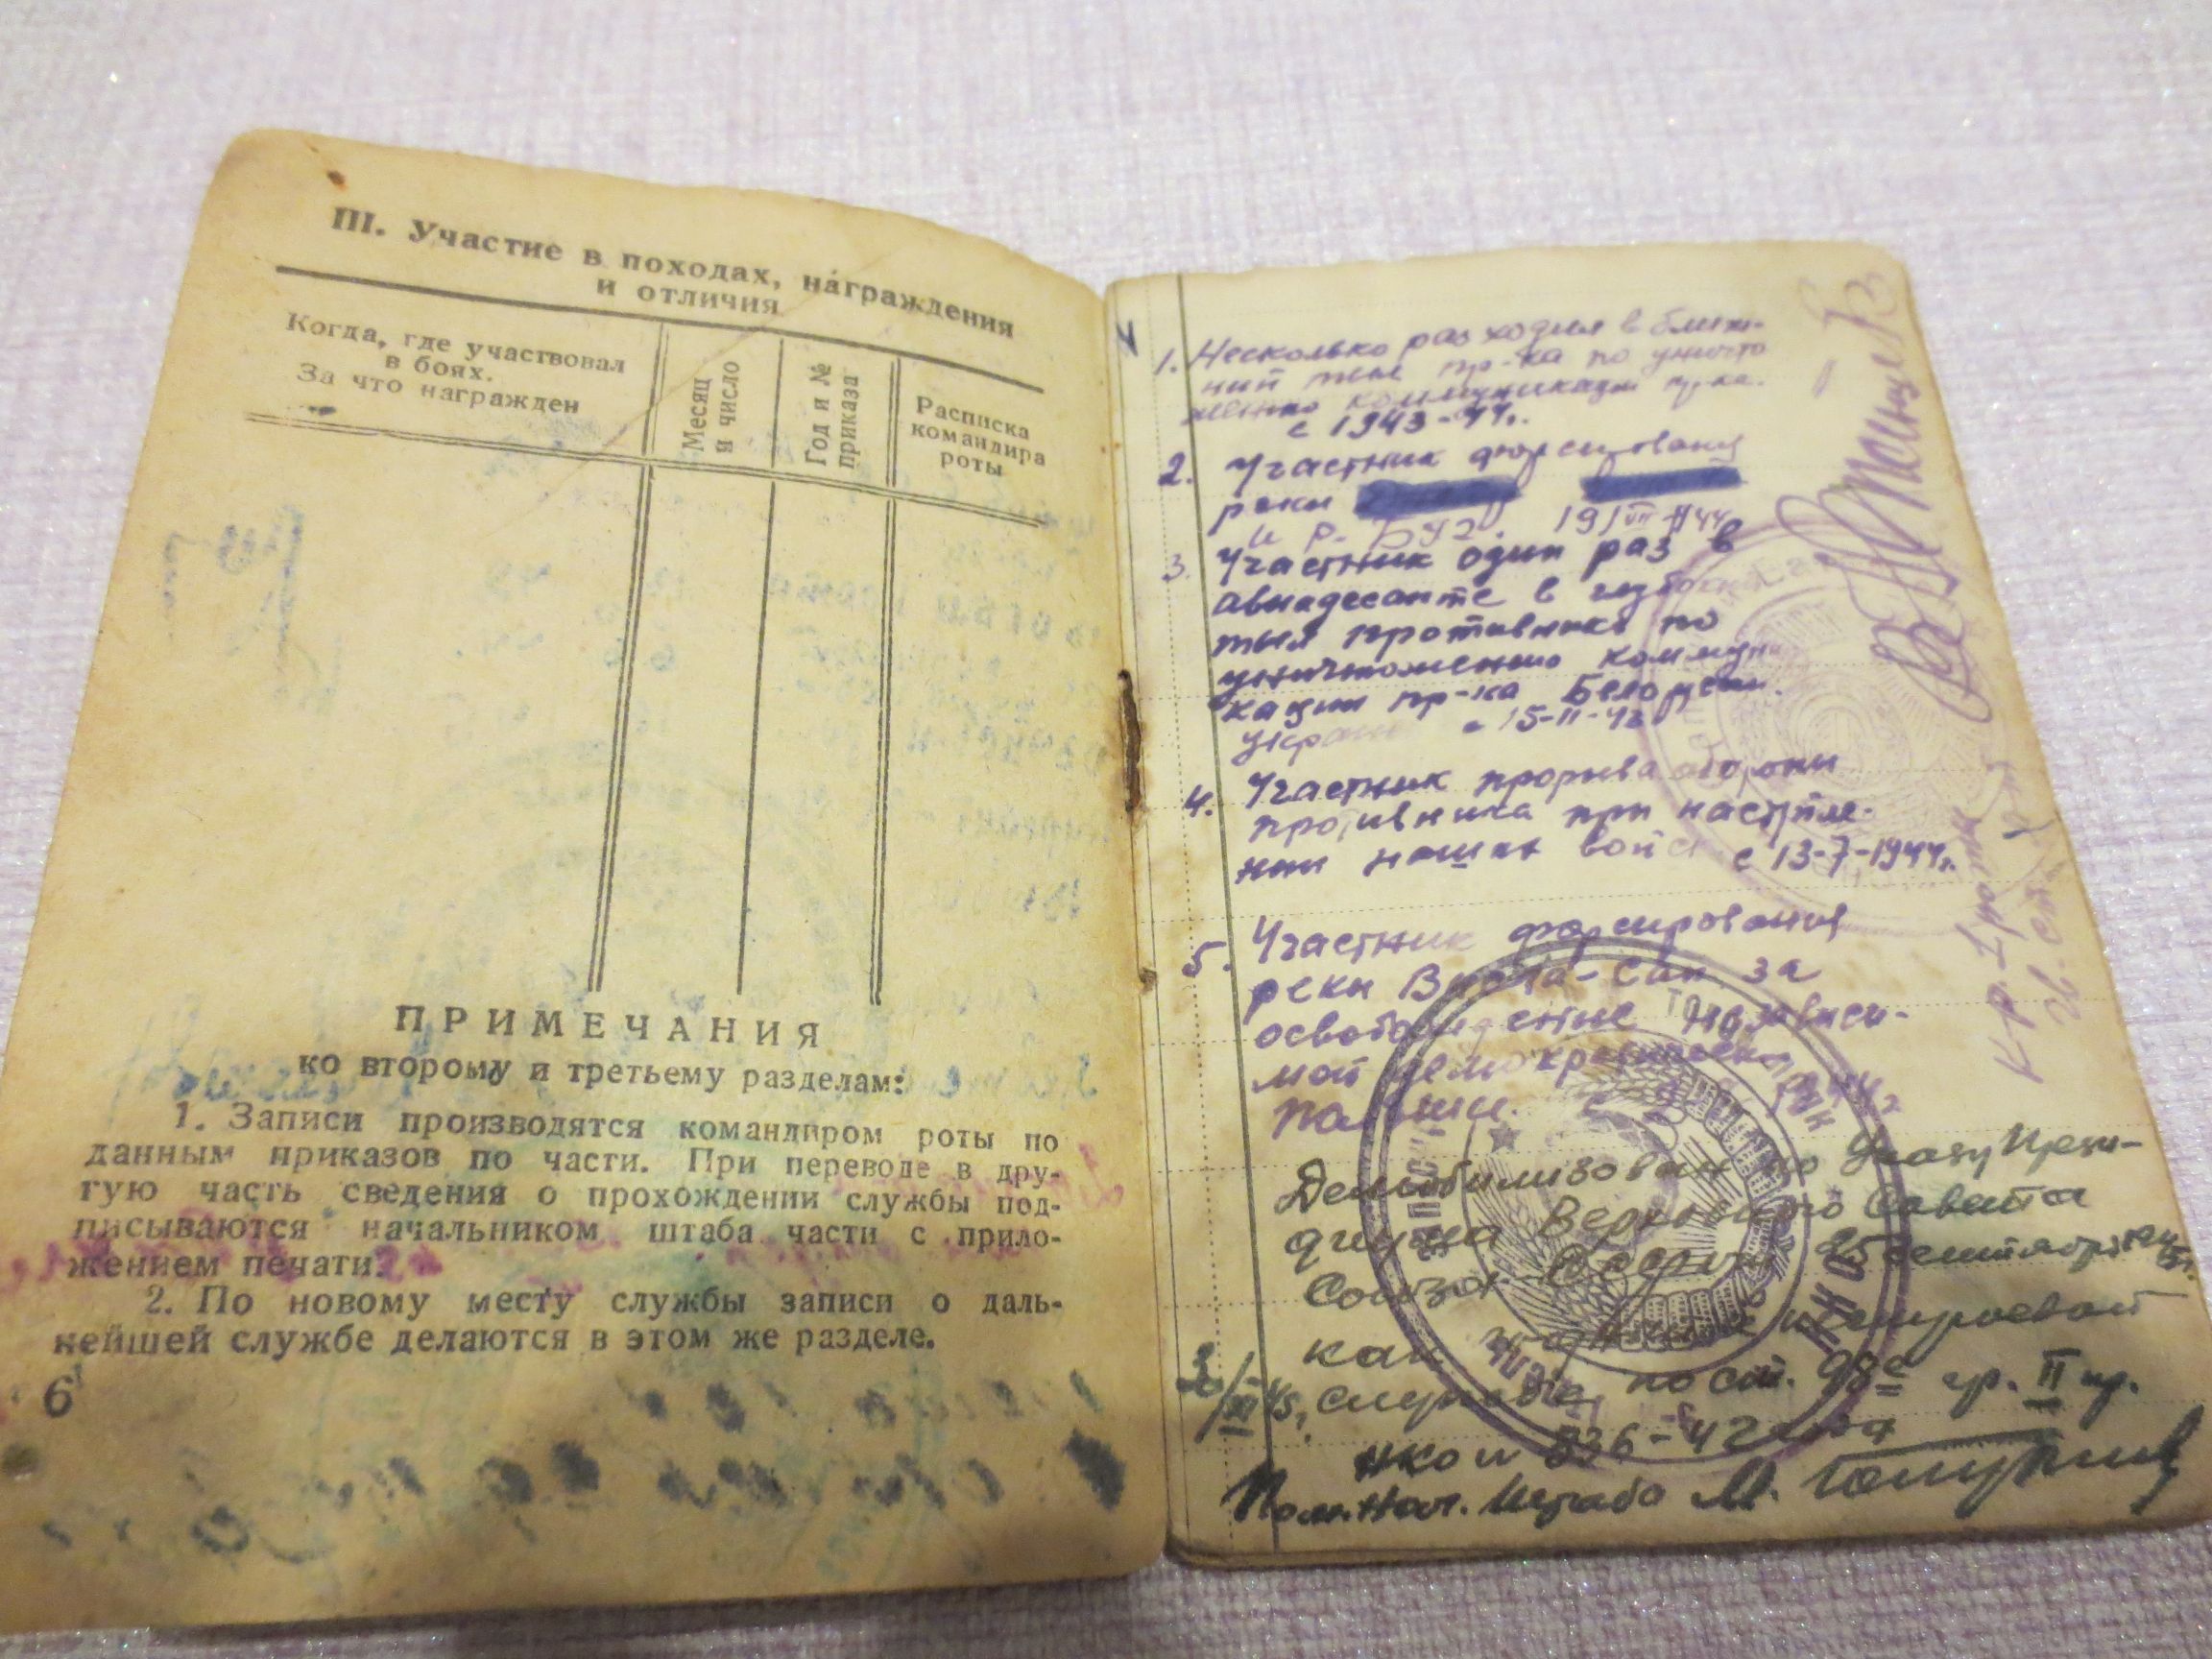 III. Участие в походах, награждения
и отличия
Когда, где участвовал
в боях.
За что награжден
Месяц
и число
Год и №
приказа
Расписка
командира
роты
ПРИМЕЧАНИЯ
ко второму и третьему разделам:
1. Записи производятся командиром роты по
данным приказов по части. При переводе в дру-
гую часть сведения о прохождении службы под-
писываются начальником штаба части с прило-
жением печати.
2. По новому месту службы записи о даль-
нейшей службе делаются в этом же разделе.
6
1. Несколько раз ходил в ближ-
ний тыл пр-ка по уничто
жению коммуникаций пр-ка.
с 1943-44г.
2. Участник форсирования
реки
и р. Буг. 19/VII-44
3. Участник один раз в
авиадесанте в глубокий
тыл противника по
уничтожению коммуни
кации пр-ка Белорусси.
с 15-II-43
4. Участник прорыва обороны
противника при наступле-
нии наших войск с 13-7-1944г.
5. Участник форсирования
реки Висла-Сан за
освобождение независи-
мой демократической
Польши. с
Демобилизован по Указу Прези-
диума Верховного Совета
Союза ССР от 25 сентября 1945г.
как годный к нестроевой
3/XI 45, службе по ст. 98 с гр. II пр.
НКО № 336-42 года
Пом. Нач. Штаба М.